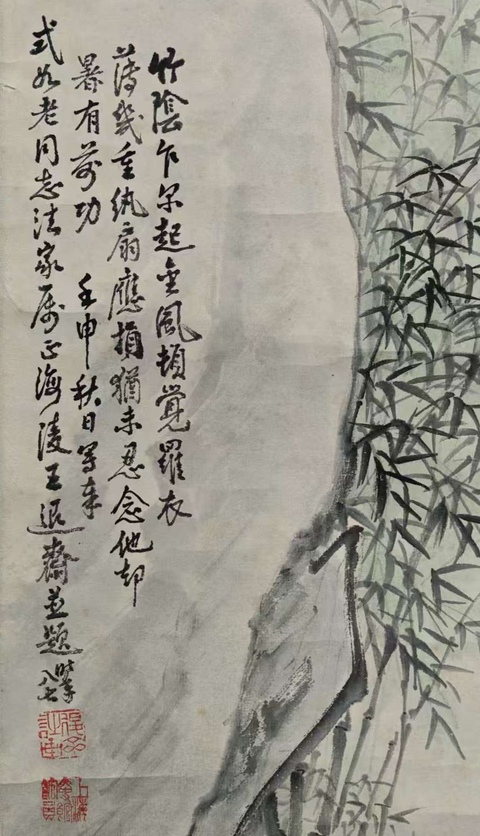 竹陰乍尔起金風頓覺羅衣
薄幾重紈扇應捐猶未忍念他却
暑有前功 壬申秋日寫奉
式如老同志法家属正海陵王退齋並題 時年八七